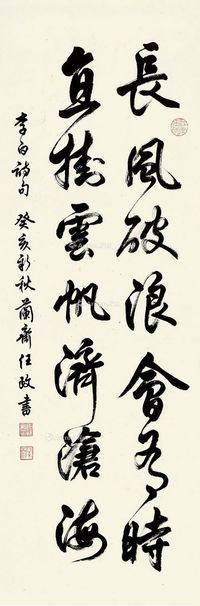 長風破浪會有時
直掛雲帆濟滄海
李白詩句 癸亥新秋蘭齋任政書